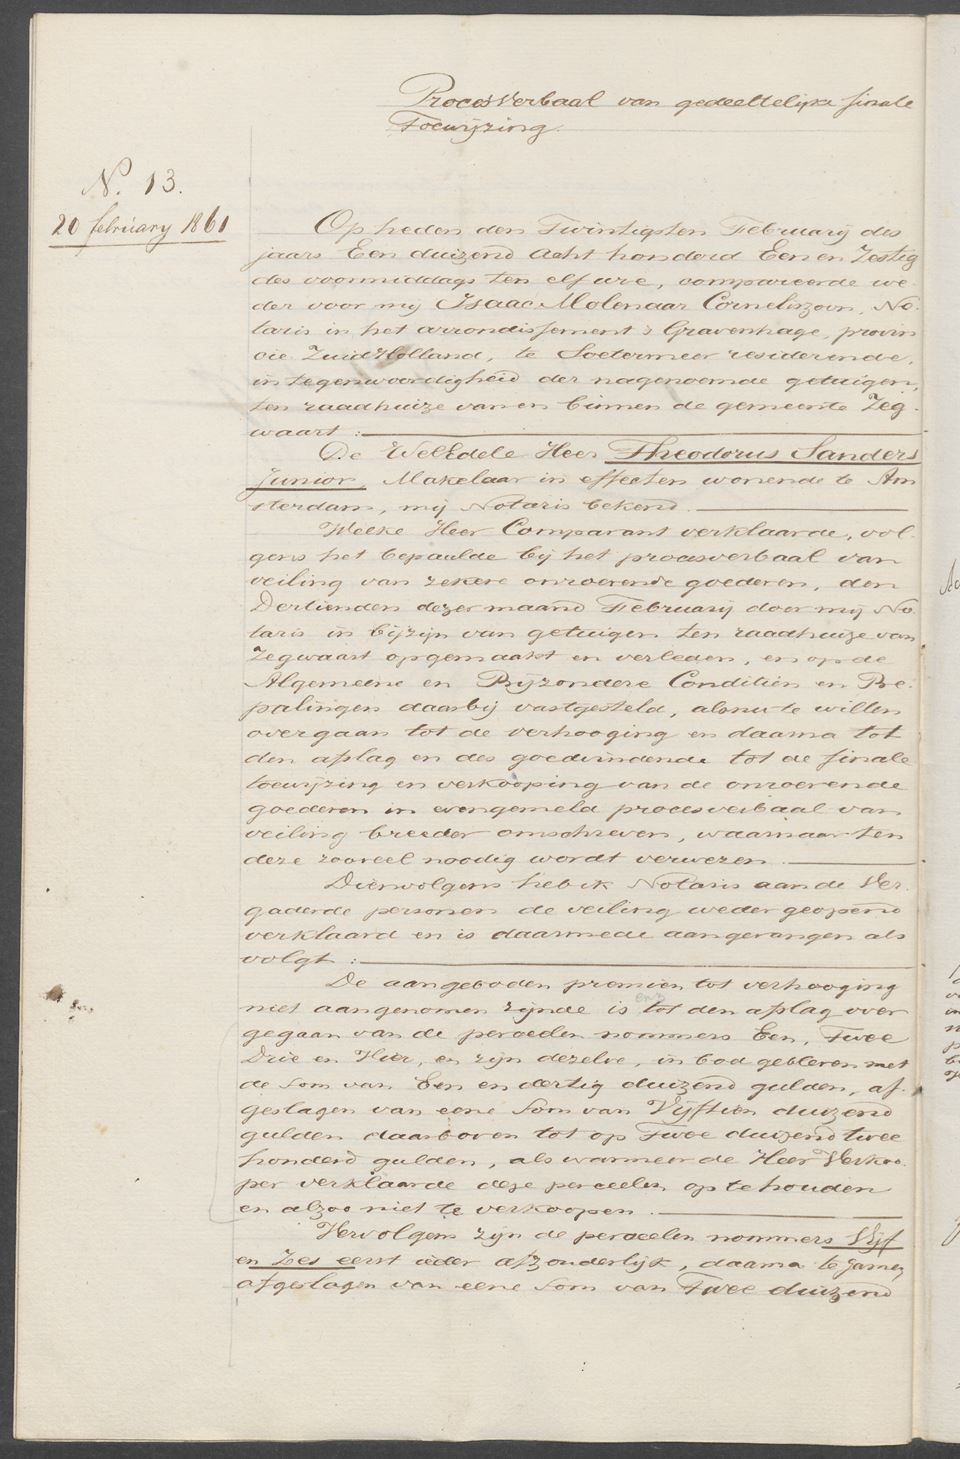 Procesverbaal van gedeeltelijke finale
Toewijzing.
N. 13.
20 february 1861
Op heden den Twintigsten Februarij des
jaars Een duizend acht honderd Een en Zestig
des voormiddags ten elf ure, compareerde we-
der voor mij Isaac Molenaar Corneliszoon, No-
taris in het arrondissement 's Gravenhage, provin
cie ZuidHolland, te Soetermeer residerende,
in tegenwoordigheid der nagenoemde getuigen,
ten raadhuize van en binnen de gemeente Zeg-
waart:
De WelEdele Heer Theodorus Sanders
Junior, Makelaar in effecten wonende te Am
sterdam, mij Notaris bekend.
Welke Heer Comparant verklaarde, vol-
gens het bepaalde bij het procesverbaal van
veiling van zekere onroerende goederen, den
Dertienden dezer maand Februarij door mij No-
taris in bijzijn van getuigen ten raadhuize van
Zegwaart opgemaakt en verleden, en op de
Algemeene en Bijzondere Conditien en Be-
palingen daarbij vastgesteld, alsnu te willen
overgaan tot de verhooging en daarna tot
den afslag en des goedvindende tot de finale
toewijzing en verkooping van de onroerende
goederen in evengemeld procesverbaal van
veiling breeder omschreven, waarnaar ten
deze zooveel noodig wordt verwezen.
Dienvolgens heb ik Notaris aan de Ver-
gaderde personen de veiling weder geopend
verklaard en is daarmede aangevangen als
volgt:
De aangeboden premien tot verhooging
niet aangenomen zijnde is tot den afslag over
gegaan van de perceelen nommers Een, Twee
Drie en Vier, en zijn dezelve, in bod gebleven met
de som van Een en dertig duizend gulden, af-
geslagen van eene som van Vijftien duizend
gulden daarboven tot op Twee duizend twee
honderd gulden, als wanneer de Heer Verkoo-
per verklaarde deze perceelen op te houden
en alzoo niet te verkoopen.
Vervolgens zijn de perceelen nommers Vijf
en Zes eerst ieder afzonderlijk, daarna te zamen
afgeslagen van eene som van Twee duizend